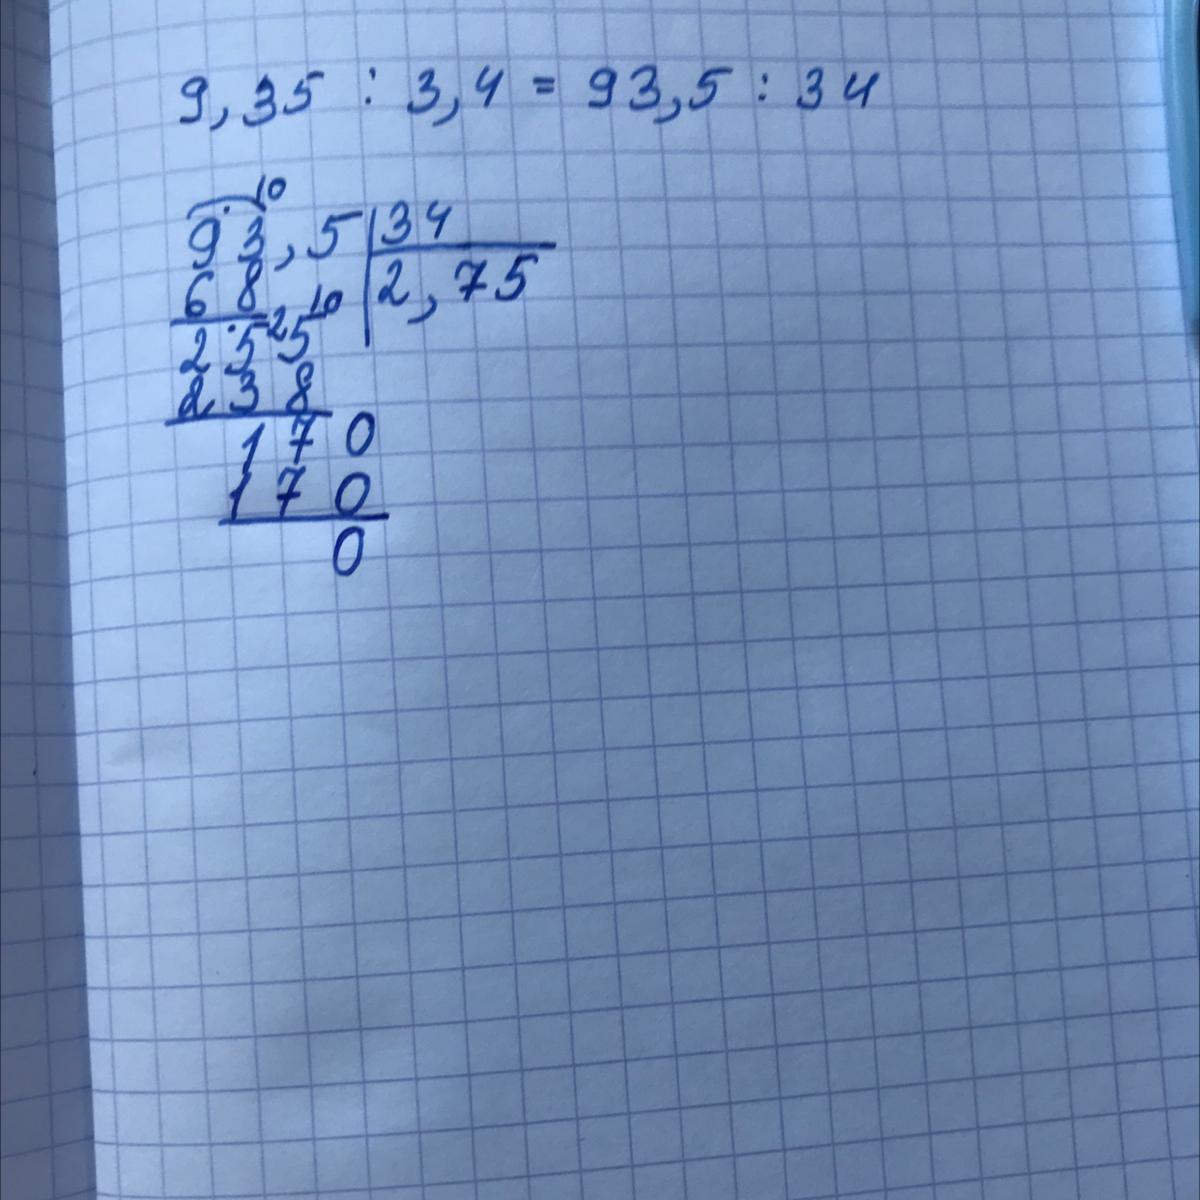 9,35 : 3,4 = 93,5 : 34
10
93,5 34
68 10 2,75
2 5 2 5
238
170
170
0